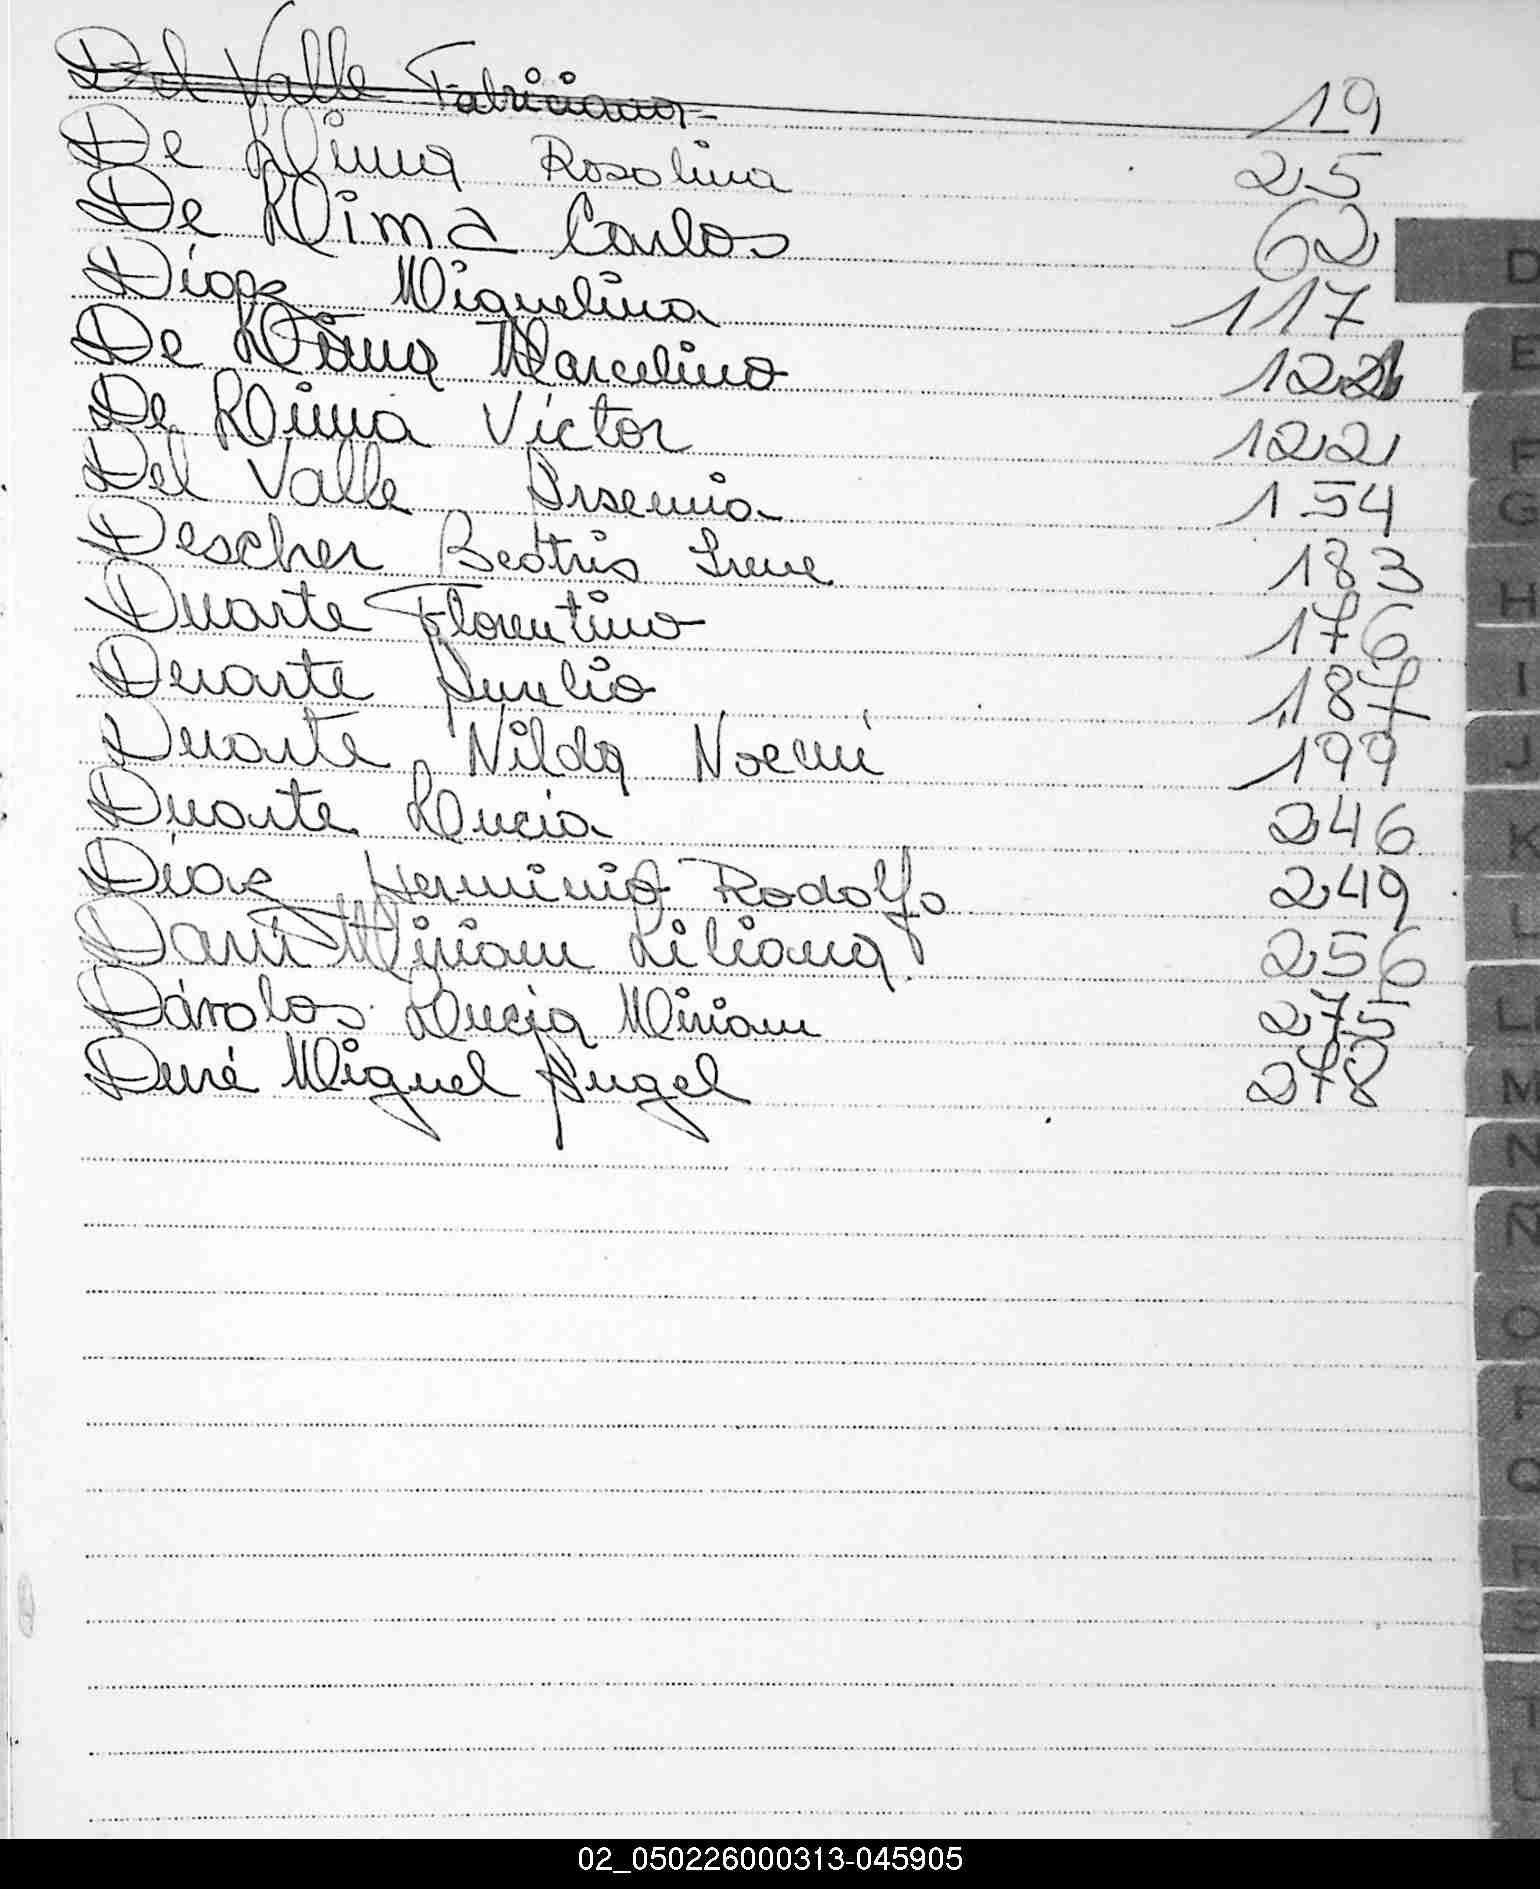 Del Valle Fabriciana 19
De Lima Rosalina 25
De Lima Carlos 62
D
Díaz Miguelina 117
De Lima Marcelino 121
E
De Lima Víctor 122
F
Del Valle Arsenia 154
G
Descher Beatris Irene 183
H
Duarte Florentino 176
Duarte Aurelio 187
I
Duarte Nilda Noemí 199
J
Duarte Lucia 246
K
Díaz Herminio Rodolfo 249
L
Miriam Liliana 256
Dávalos Lucia Miriam 275
LL
Duré Miguel Angel 278
M
N
Ñ
O
P
Q
R
S
T
U
02_050226000313-045905